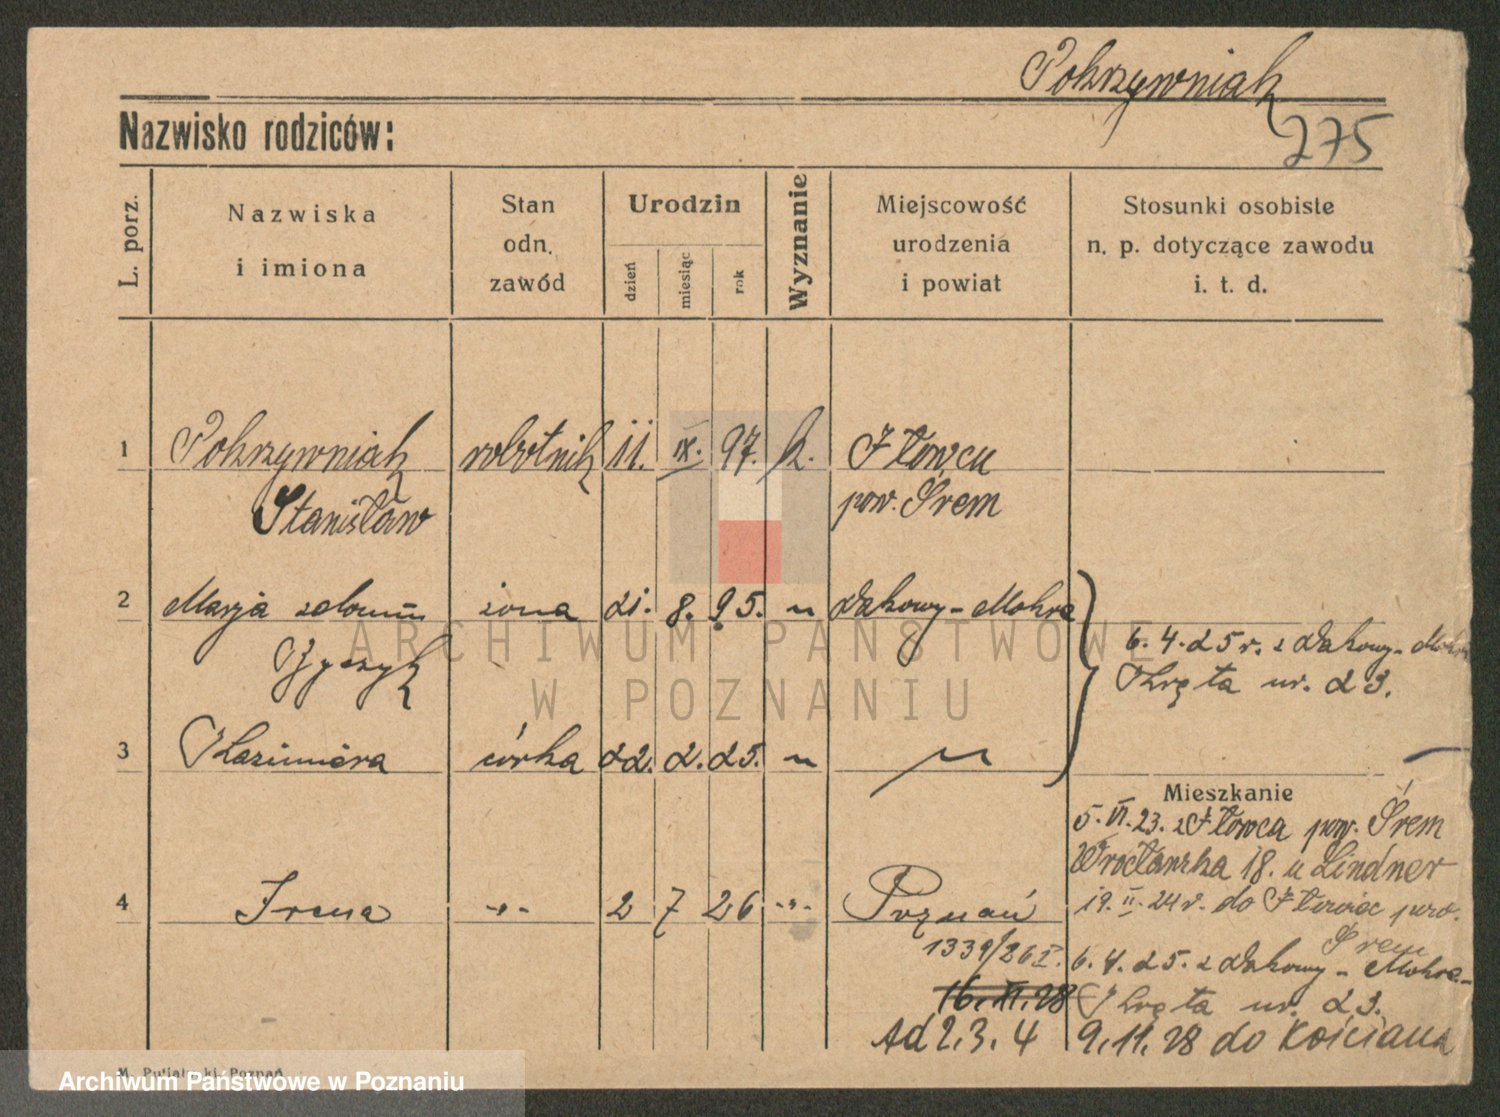 Pokrzywniak
275
Nazwisko rodziców:
L. porz.
Nazwiska
i imiona
Stan
odn.
zawód
Urodzin
dzień
miesiąc
rok
Wyznanie
Miejscowość
urodzenia
i powiat
Stosunki osobiste
n. p. dotyczące zawodu
i. t. d.
1 Pokrzywniak robotnik 11. IX. 97. k. Iłówcu
Stanisław pow. Śrem
2 Marja z domu żona 21. 8. 95. " Dakowy-Mokre
6. 4. 25 r. z Dakowy-Mokre
Kręta nr. 23.
3 Kazimiera córka 22. 2. 25. "
Mieszkanie
5. VI. 23. z Iłówca pow. Śrem
Wrocławska 18. u Lindner
4 Irena -"- 2 7 26 -"- Poznań
19. II. 24 r. do Iłówiec pow.
Śrem
1339/26 I.
6. 4. 25. z Dakowy-Mokre-
16. XI. 28
Kręta nr. 23.
Ad 2. 3. 4 9. 11. 28 do Kościana
M. Putiatycki, Poznań
ARCHIWUM PAŃSTWOWE
W POZNANIU
Archiwum Państwowe w Poznaniu